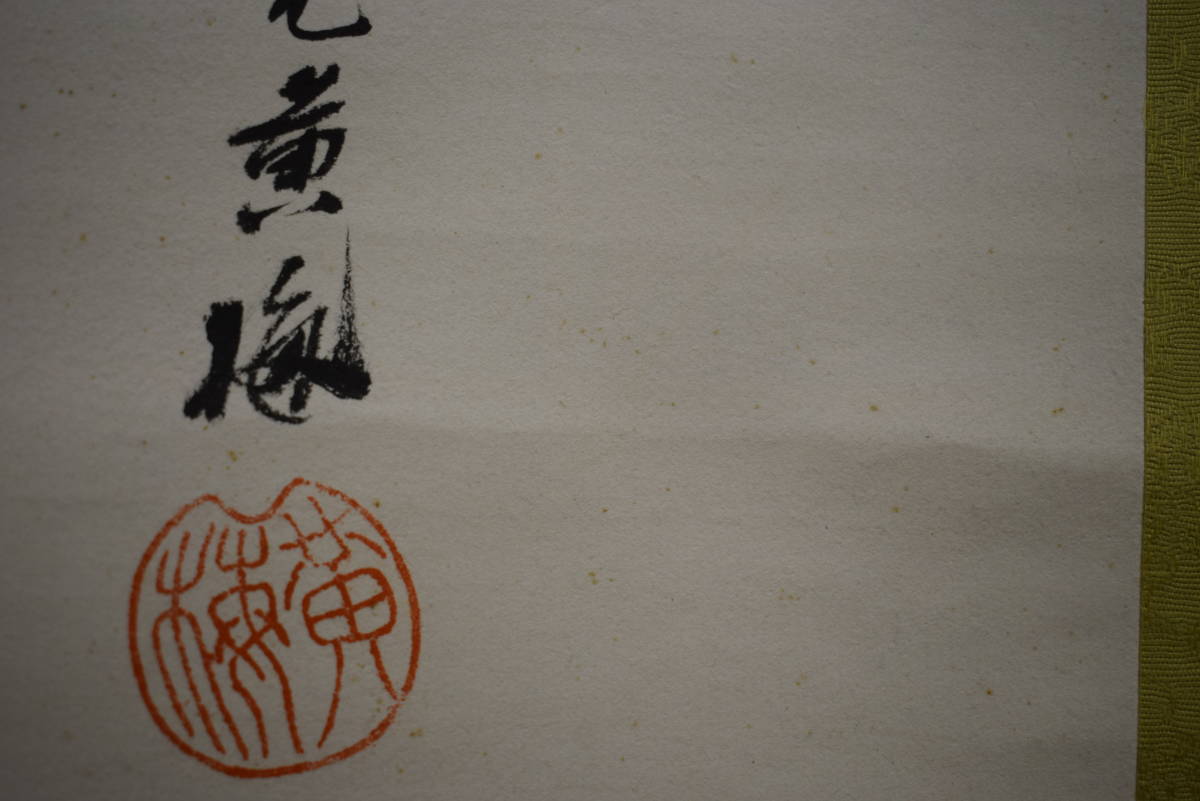 黄梅
黄梅